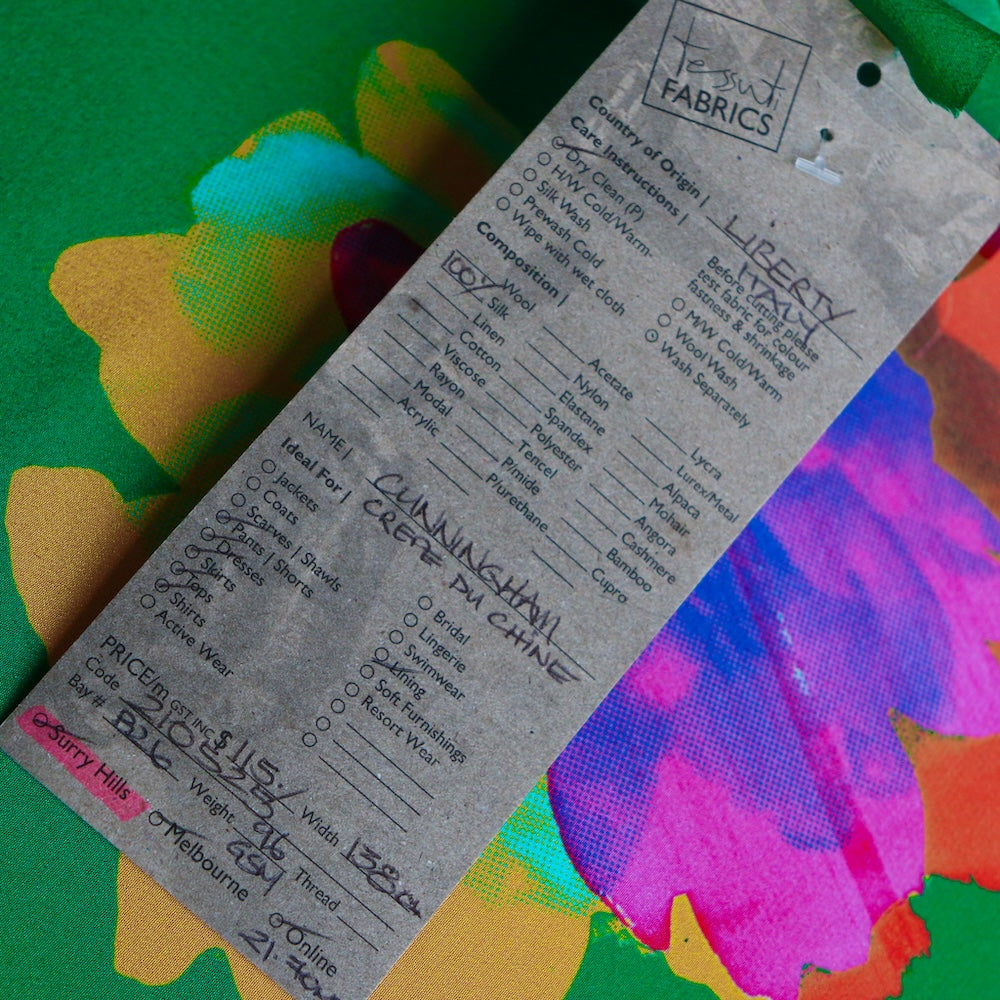 tessuti
FABRICS
Country of Origin | LIBERTY
ITALY
Care Instructions |
Dry Clean (P)
H/W Cold/Warm
Silk Wash
Prewash Cold
Wipe with wet cloth
Before cutting please
test fabric for colour
fastness & shrinkage
M/W Cold/Warm
Wool Wash
Wash Separately
Composition |
Wool
100% Silk
Linen
Cotton
Viscose
Rayon
Modal
Acrylic
Acetate
Nylon
Elastane
Spandex
Polyester
Tencel
P/mide
P/urethane
Lycra
Lurex/Metal
Alpaca
Mohair
Angora
Cashmere
Bamboo
Cupro
NAME | CUNNINGHAM
CREPE DU CHINE
Ideal For |
Jackets
Coats
Scarves | Shawls
Pants | Shorts
Dresses
Skirts
Tops
Shirts
Active Wear
Bridal
Lingerie
Swimwear
Lining
Soft Furnishings
Resort Wear
PRICE/m GST INC $115
Code
Width 138cm
Bay # B26 Weight 96 GSM Thread
Surry Hills
Melbourne
Online